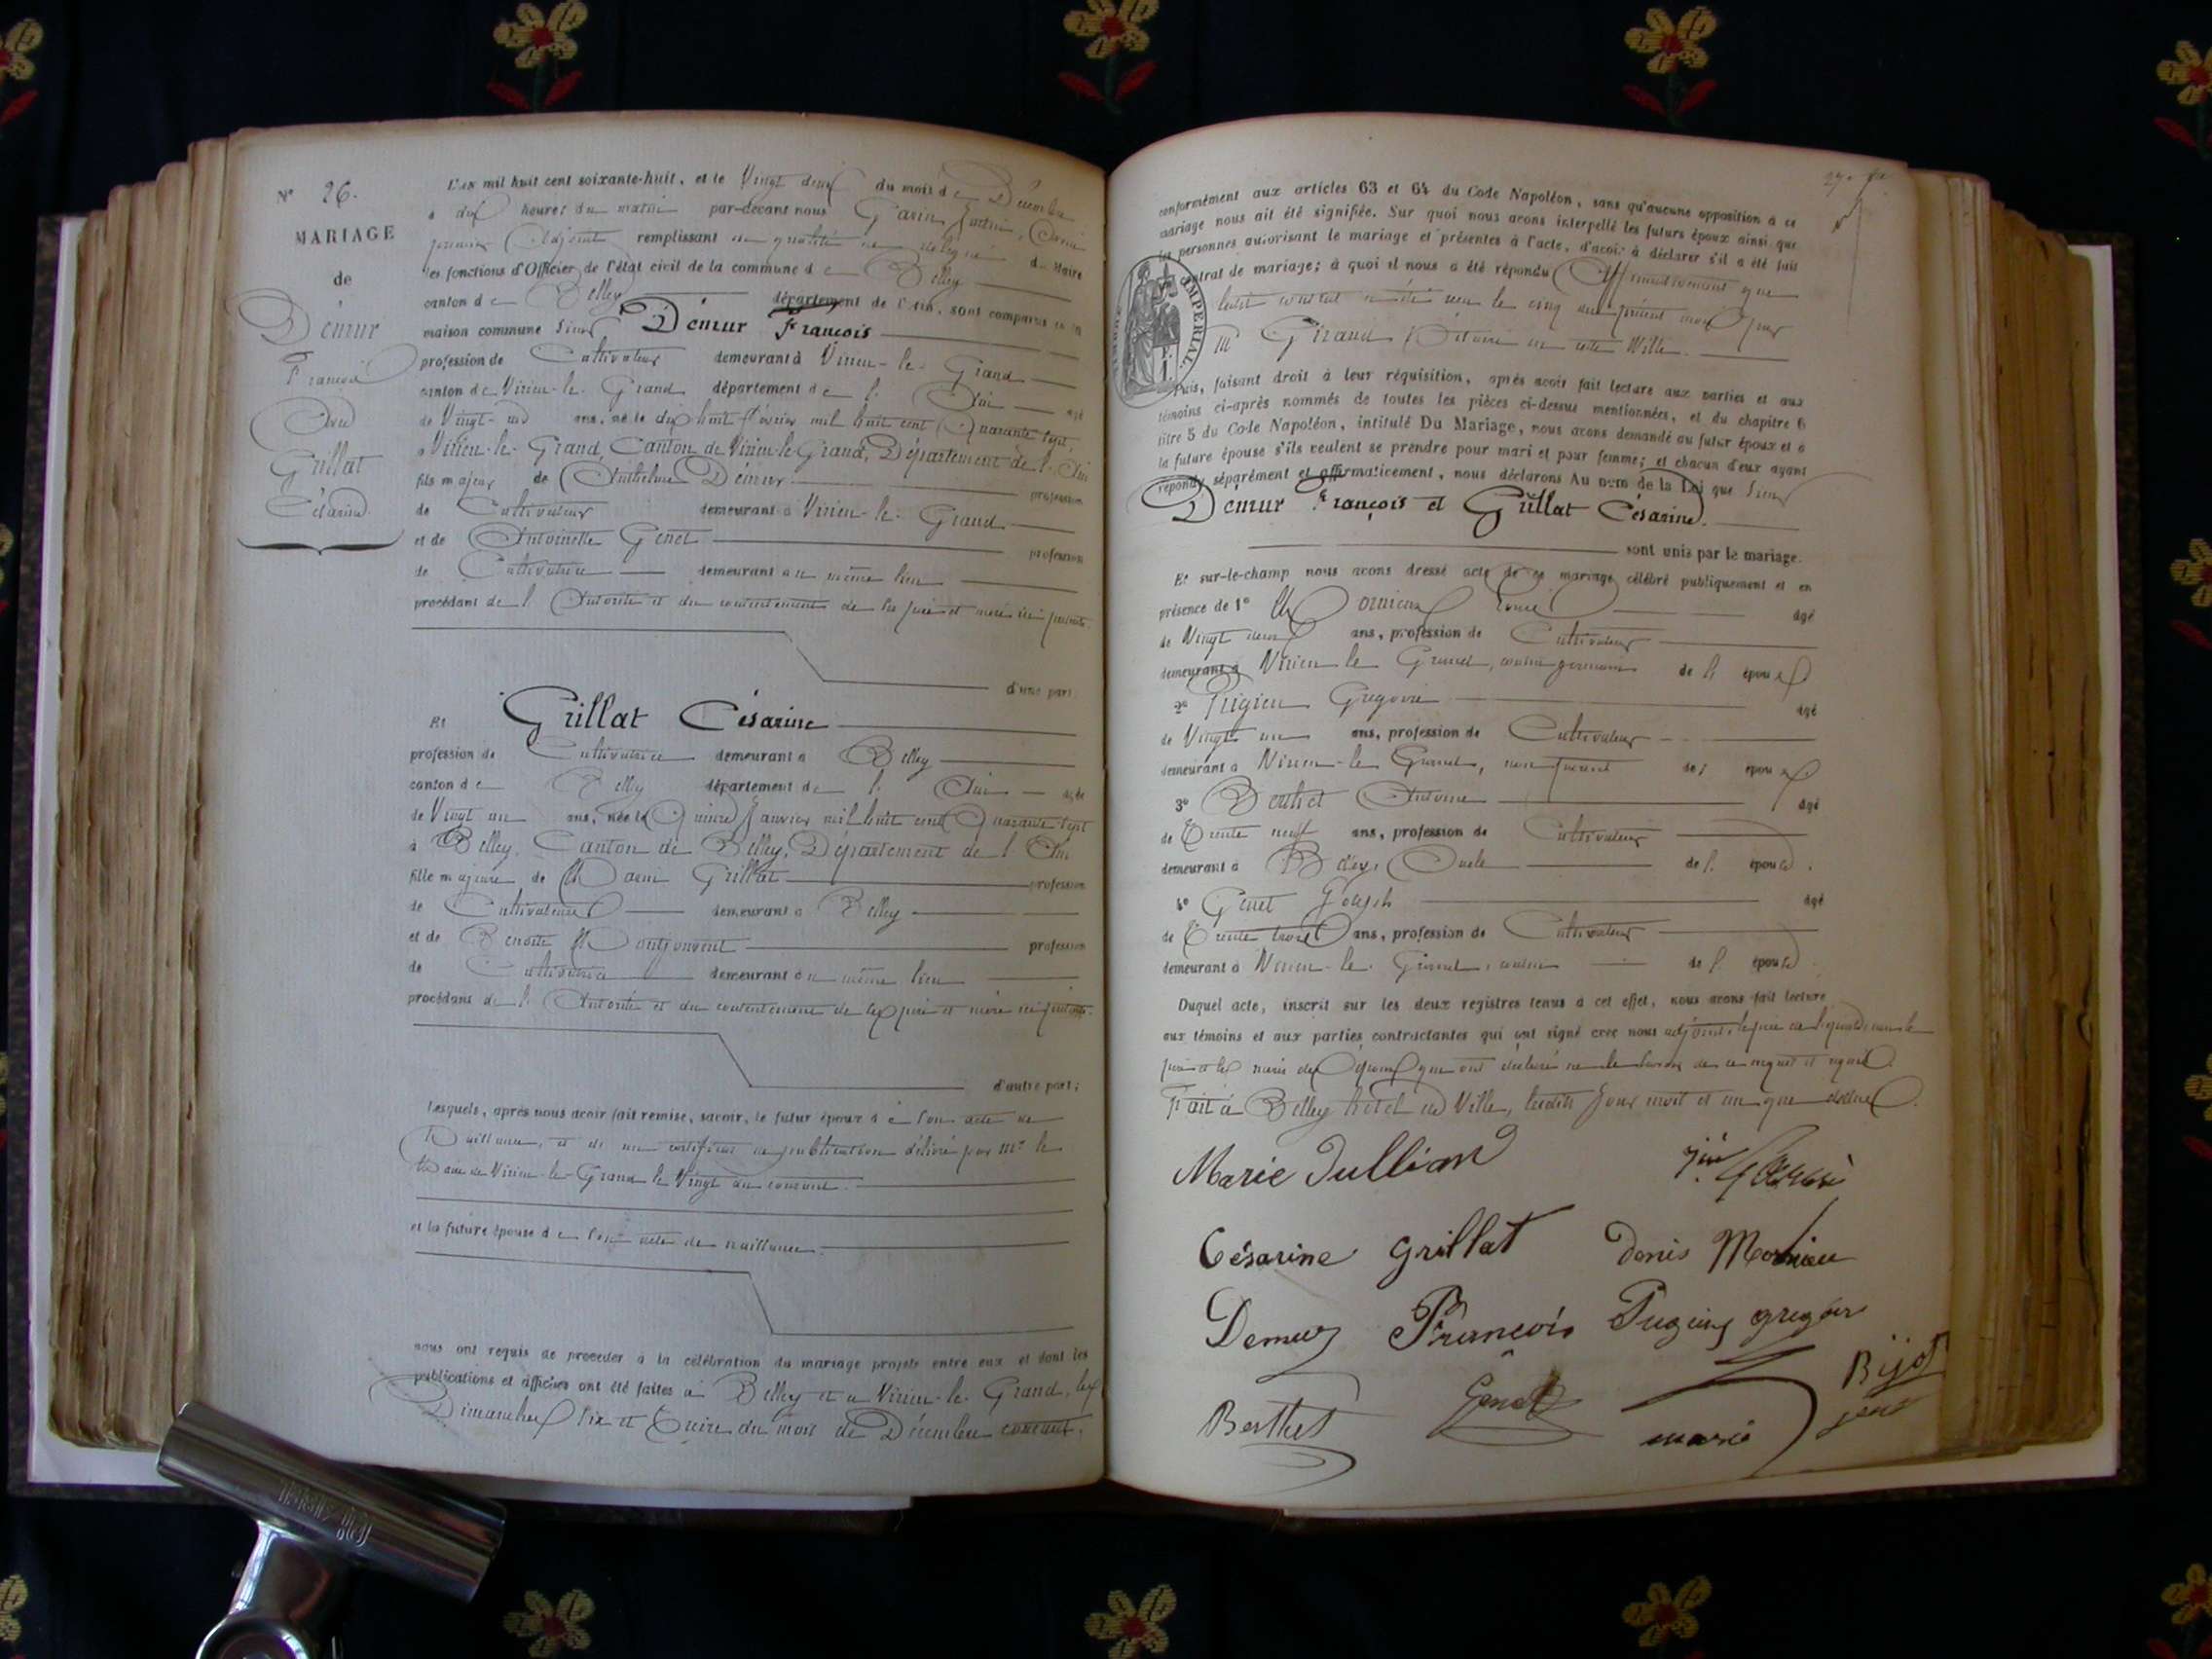 N° 26.
MARIAGE
de
Demur
François
Avec
Grillat
Césarine
L'AN mil huit cent soixante-huit, et le Vingt deux du mois de Décembre
à dix heures du matin par-devant nous Garin
premier Adjoint remplissant en qualité de délégué du Maire
les fonctions d'Officier de l'état civil de la commune de Belley
canton de Belley département de l'Ain, sont comparus en la
maison commune Sieur Démur François
profession de Cultivateur demeurant à Virieu-le-Grand
canton de Virieu-le-Grand département de l'Ain âgé
de Vingt-un ans, né le dix huit Février mil huit cent Quarante sept,
à Virieu-le-Grand, Canton de Virieu-le-Grand, Département de l'Ain
fils majeur de Anthelme Démur profession
de Cultivateur demeurant à Virieu-le-Grand
et de Antoinette Genet profession
de Cultivatrice demeurant au même lieu
procédant de l'Autorité et du consentement de ses père et mère ici présents.
d'une part;
Et Grillat Césarine
profession de Cultivatrice demeurant à Belley
canton de Belley département de l'Ain âgée
de Vingt un ans, née le Quinze Janvier mil huit cent Quarante sept
à Belley, Canton de Belley, Département de l'Ain
fille majeure de Grillat profession
de Cultivateur demeurant à Belley
et de Benoite Montjouvent profession
de Cultivatrice demeurant au même lieu
procédant de l'Autorité et du consentement de ses père et mère ici présents.
d'autre part;
Lesquels, après nous avoir fait remise, savoir, le futur époux de son acte de
Naissance, et de un certificat de publication délivré par Mr le
Maire de Virieu-le-Grand le Vingt du courant.
et la future épouse de son acte de naissance.
nous ont requis de procéder à la célébration du mariage projeté entre eux et dont les
publications et affiches ont été faites à Belley et à Virieu-le-Grand, les
Dimanches Six et Treize du mois de Décembre courant.
conformément aux articles 63 et 64 du Code Napoléon, sans qu'aucune opposition à ce
mariage nous ait été signifiée. Sur quoi nous avons interpellé les futurs époux ainsi que
les personnes autorisant le mariage et présentes à l'acte, d'avoir à déclarer s'il a été fait
contrat de mariage; à quoi il nous a été répondu Affirmativement que
ledit contrat a été reçu le cinq du présent mois par
Me Girand Notaire en cette Ville.
IMPERIAL
Puis, faisant droit à leur réquisition, après avoir fait lecture aux parties et aux
témoins ci-après nommés de toutes les pièces ci-dessus mentionnées, et du chapitre 6
titre 5 du Code Napoléon, intitulé Du Mariage, nous avons demandé au futur époux et à
la future épouse s'ils veulent se prendre pour mari et pour femme; et chacun d'eux ayant
répondu séparément et affirmativement, nous déclarons Au nom de la Loi que Sieur
Démur François et Grillat Césarine.
sont unis par le mariage.
Et sur-le-champ nous avons dressé acte de ce mariage célébré publiquement et en
présence de 1° Mornieux Denis âgé
de Vingt deux ans, profession de Cultivateur
demeurant à Virieu le Grand, cousin germain de l'époux
2° Pugieu Grégoire âgé
de Vingt un ans, profession de Cultivateur
demeurant à Virieu-le-Grand, non parent de l'époux
3° Berthet Antoine âgé
de Trente neuf ans, profession de Cultivateur
demeurant à Oncle de l'épouse.
4° Genet Joseph âgé
de Trente trois ans, profession de Cultivateur
demeurant à Virieu-le-Grand, cousin de l'épouse.
Duquel acte, inscrit sur les deux registres tenus à cet effet, nous avons fait lecture
aux témoins et aux parties contractantes qui ont signé avec nous adjoint
père et les mères des époux qui ont déclaré ne le savoir de ce requis
Fait à Belley hôtel de Ville, lesdits jour mois et an que dessus.
Marie Jullian
Césarine Grillat Denis Mornieu
Demur François Pugieux gregoire
Berthet Genet marie Bijot